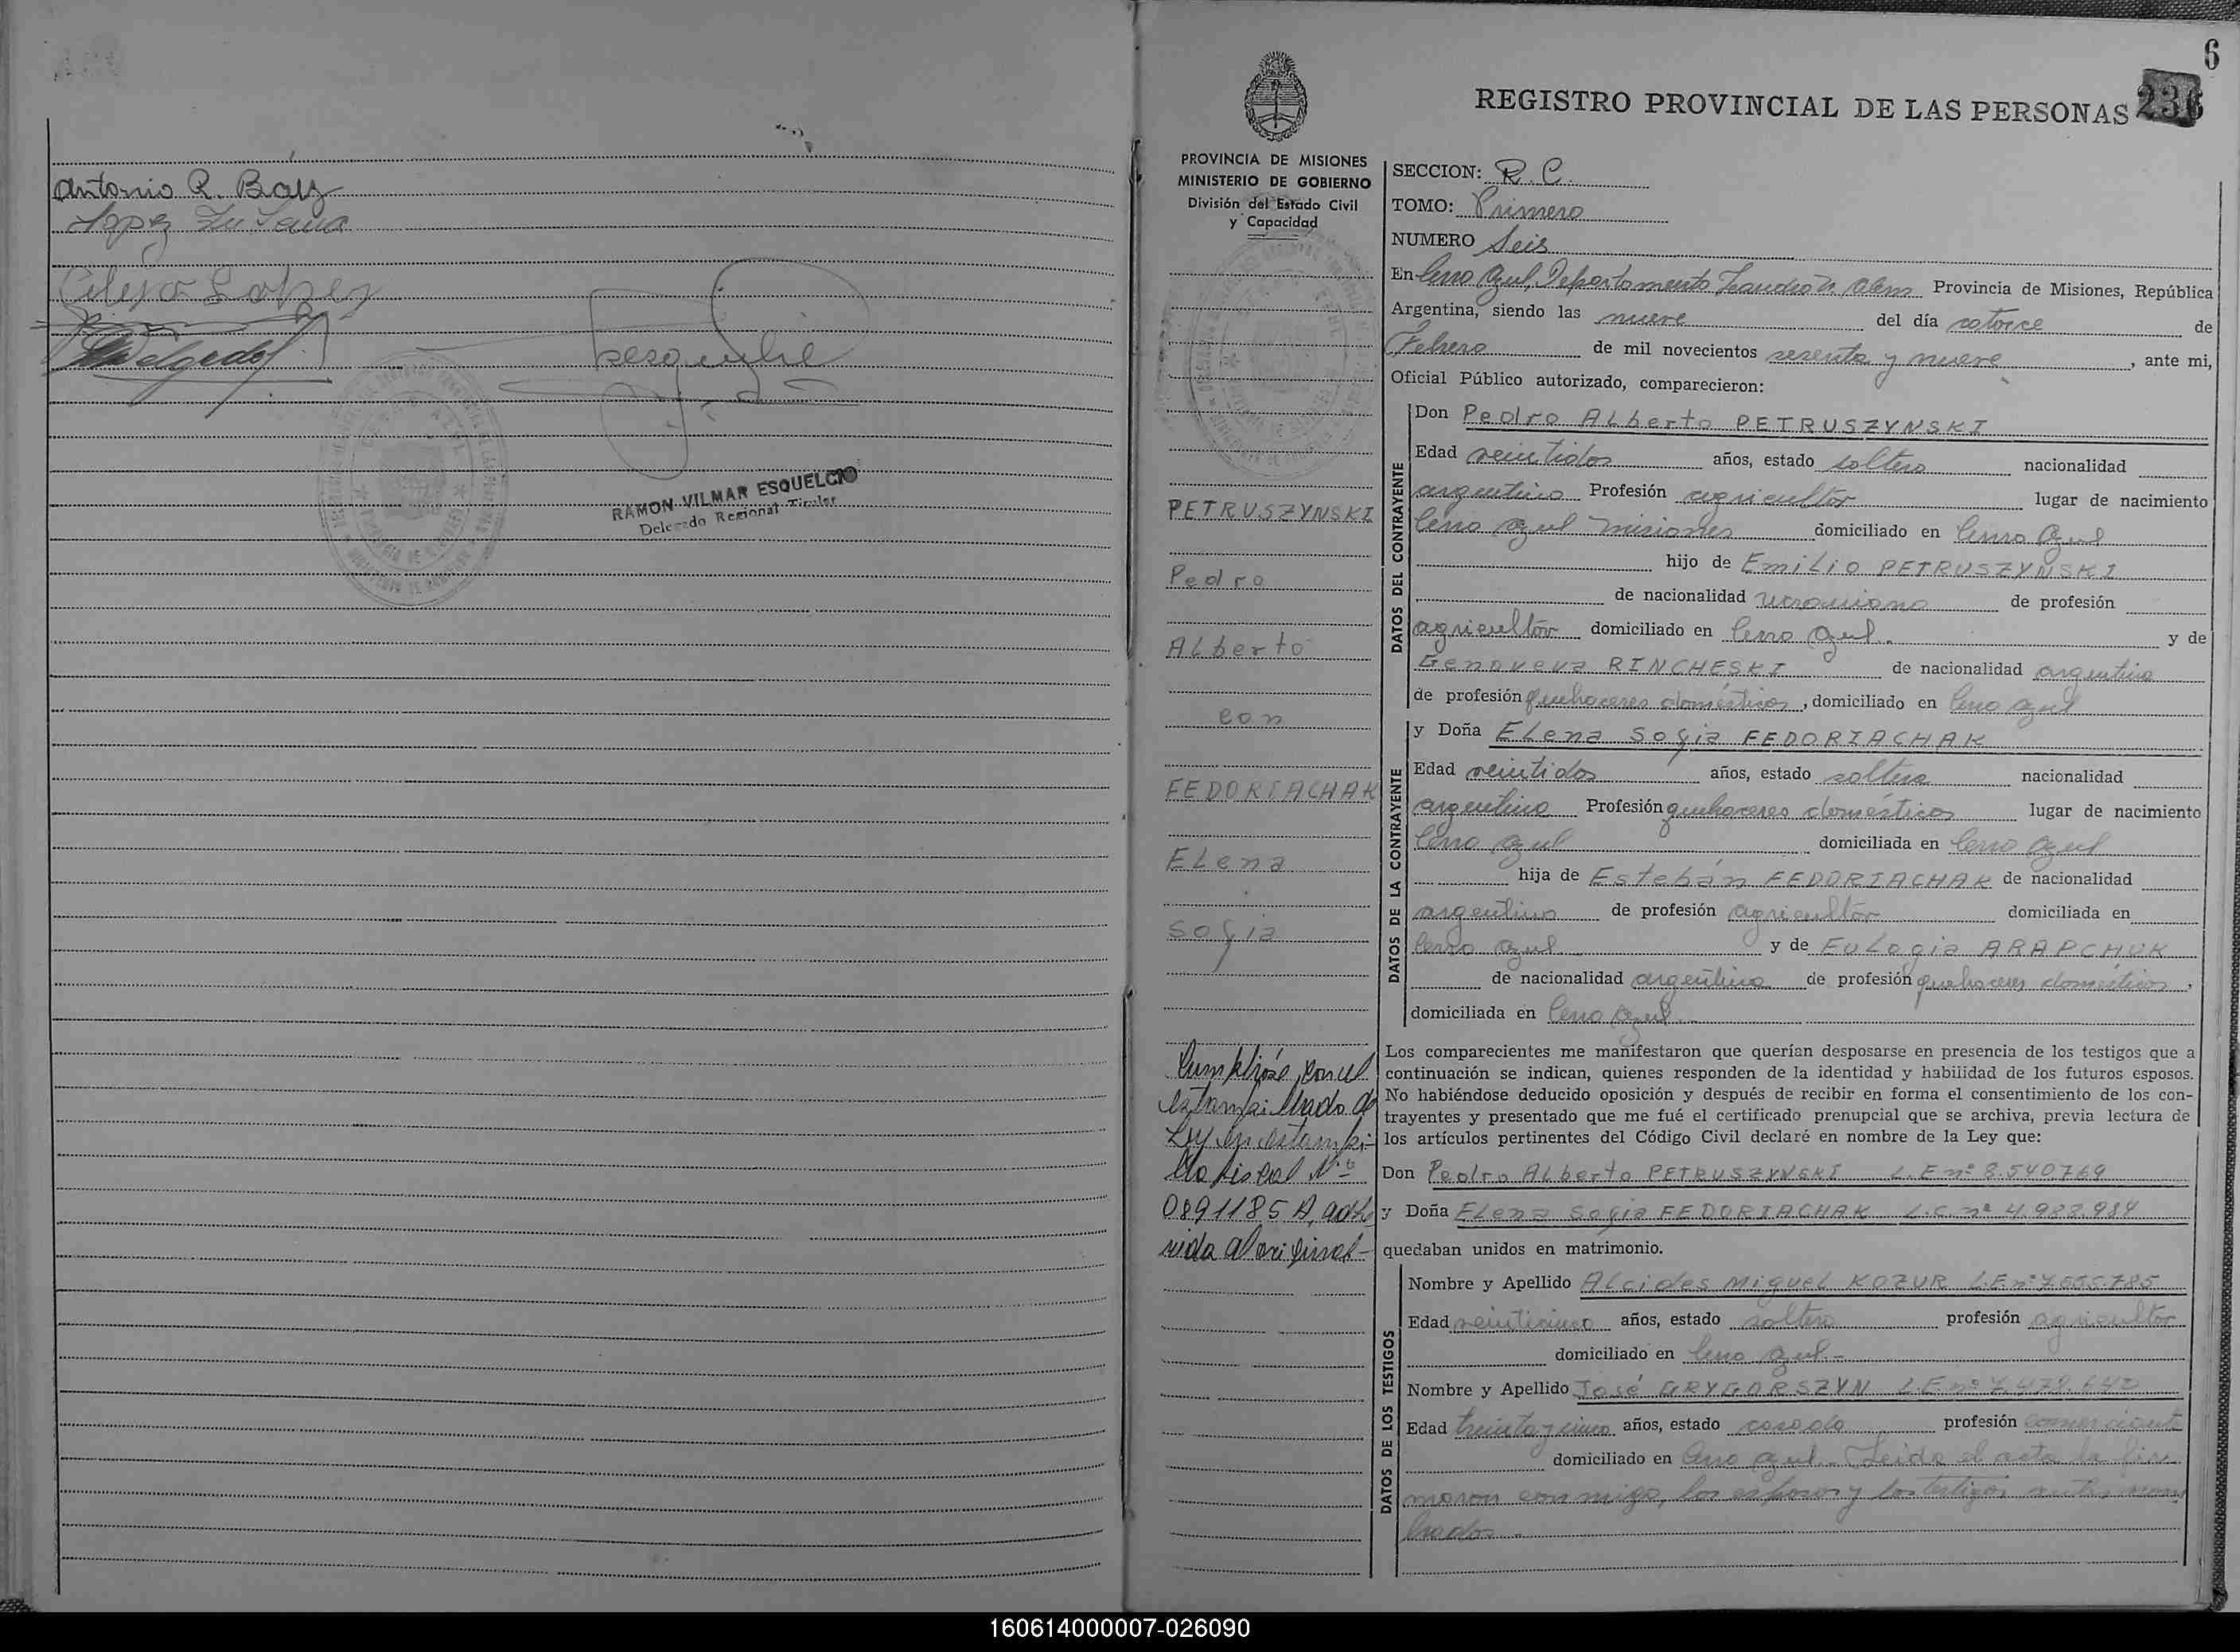 Antonio R. Baez
Lopez
Lopez
Delgado
RAMON VILMAR ESQUELCIO
Delegado Regional Titular
6
236
REGISTRO PROVINCIAL DE LAS PERSONAS
PROVINCIA DE MISIONES
MINISTERIO DE GOBIERNO
División del Estado Civil
y Capacidad
PETRUSZYNSKI
Pedro
Alberto
con
FEDORIACHAK
Elena
Sofia
Cumplióse con el
estampillado de
Ley en estampi-
lla fiscal Nº
0891185 A, adhe
rida al original-
SECCION: R. C.
TOMO: Primero
NUMERO Seis
En Cerro Azul, Departamento Leandro N. Alem Provincia de Misiones, República
Argentina, siendo las nueve del día catorce de
Febrero de mil novecientos sesenta y nueve, ante mi,
Oficial Público autorizado, comparecieron:
DATOS DEL CONTRAYENTE
Don Pedro Alberto PETRUSZYNSKI
Edad veintidos años, estado soltero nacionalidad
argentino Profesión agricultor lugar de nacimiento
Cerro Azul Misiones domiciliado en Cerro Azul
hijo de Emilio PETRUSZYNSKI
de nacionalidad ucraniano de profesión
agricultor domiciliado en Cerro Azul. y de
Genoveva RINCHESKI de nacionalidad argentina
de profesión quehaceres domésticos, domiciliado en Cerro Azul
DATOS DE LA CONTRAYENTE
y Doña Elena Sofia FEDORIACHAK
Edad veintidos años, estado soltera nacionalidad
argentina Profesión quehaceres domésticos lugar de nacimiento
Cerro Azul domiciliada en Cerro Azul
hija de Estebán FEDORIACHAK de nacionalidad
argentino de profesión agricultor domiciliada en
Cerro Azul y de Eulogia ARAPCHUK
de nacionalidad argentina de profesión quehaceres domésticos,
domiciliada en Cerro Azul.-
Los comparecientes me manifestaron que querían desposarse en presencia de los testigos que a
continuación se indican, quienes responden de la identidad y habilidad de los futuros esposos.
No habiéndose deducido oposición y después de recibir en forma el consentimiento de los con-
trayentes y presentado que me fué el certificado prenupcial que se archiva, previa lectura de
los artículos pertinentes del Código Civil declaré en nombre de la Ley que:
Don Pedro Alberto PETRUSZYNSKI L.E nº 8.540769
y Doña Elena Sofia FEDORIACHAK L.C. nº 4.922.984
quedaban unidos en matrimonio.
DATOS DE LOS TESTIGOS
Nombre y Apellido Alcides Miguel KOZUR L.E. nº 7.555.785
Edad veinticinco años, estado soltero profesión agricultor
domiciliado en Cerro Azul.-
Nombre y Apellido José GRYGORSZYN L.E nº
Edad treinta y cinco años, estado casado profesión comerciante
domiciliado en Cerro Azul.- Leida el acta la fir-
maron conmigo, los esposos y los testigos antes nom-
brados.-
160614000007-026090